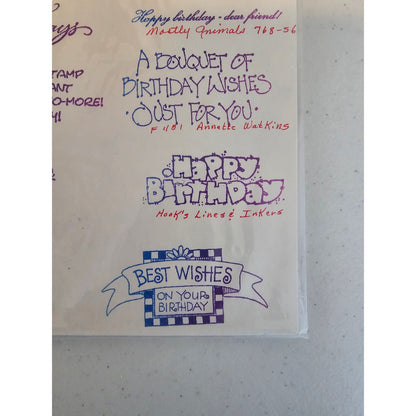 Happy birthday - dear friend!
Mostly Animals 768-56
A BOUQUET OF
BIRTHDAY WISHES
• JUST FOR YOU •
F 481 Annette Watkins
STAMP
ANT
O-MORE!
Y!
Happy
BiRTHDAY
Hook's Lines & Inkers
BEST WISHES
ON YOUR
BIRTHDAY